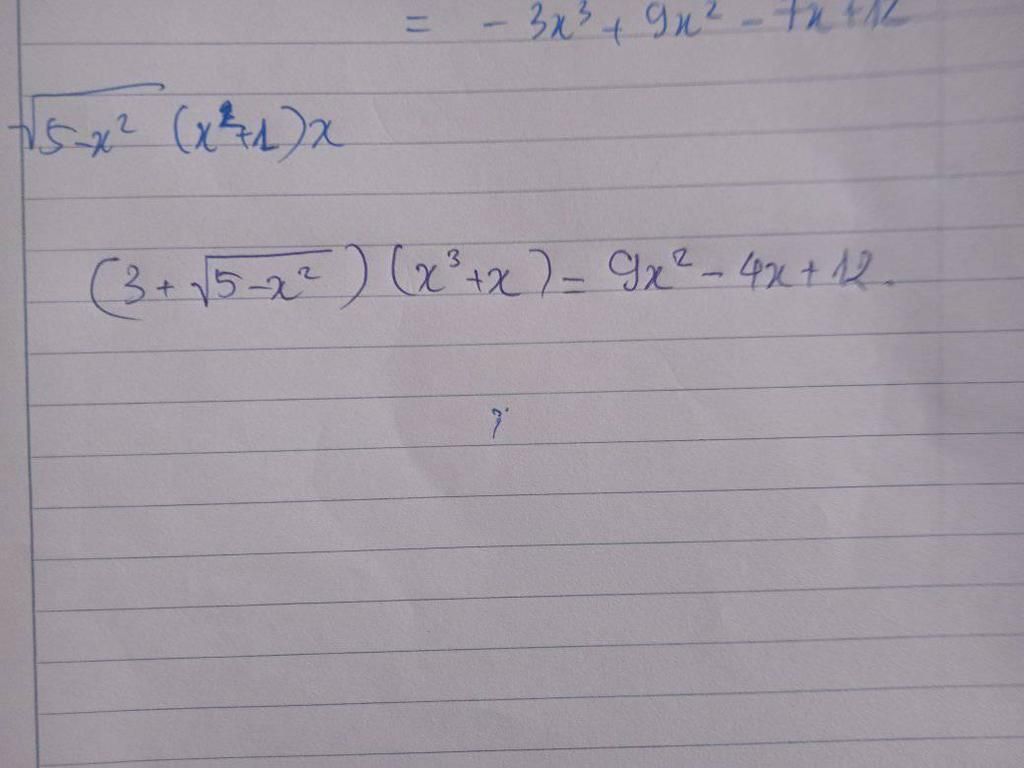 = - 3x³ + 9x² - 7x + 12
√5-x² (x²+1)x
(3 + √5-x²) (x³+x) = 9x² - 4x + 12.
?